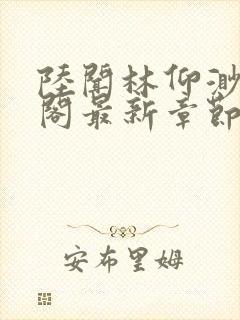 陸聞林仰渺
閣最新章節
安布里姆